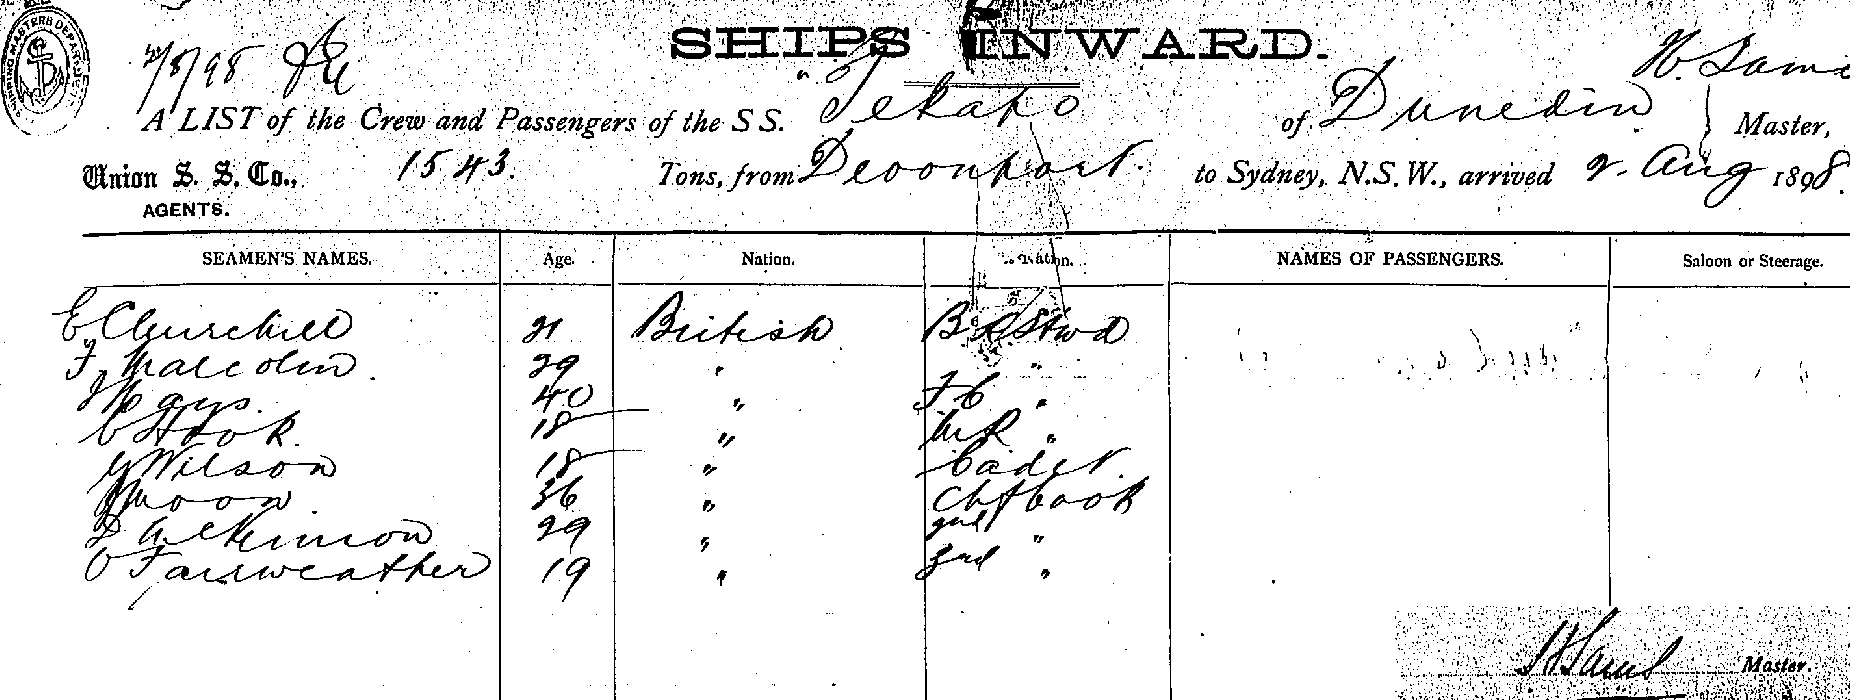 SHIPS INWARD.
2/8/98
A LIST of the Crew and Passengers of the S S. "Tekapo of Dunedin Master,
Union S. S. Co., 1543. Tons, from Devonport. to Sydney, N.S.W., arrived 2. Aug 1898.
AGENTS.
SEAMEN'S NAMES. Age. Nation. NAMES OF PASSENGERS. Saloon or Steerage.
E Churchill 21 British Stwd
F Malcolm. 29 " "
Hays. 40 " F C "
C Hook. 18 " "
Wilson 18 " Cadet.
Moon. 36 " Chf Cook
Wilkinson 29 " 2nd "
C Fairweather 19 " 3rd "
Master.